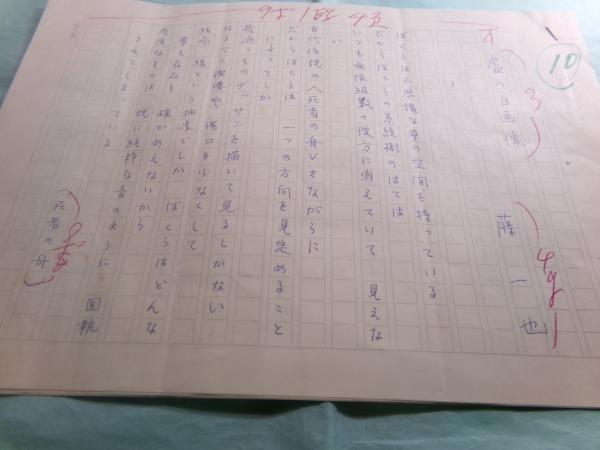 9ポ1段
10
虚の自画像
3
藤一也
1
ぼくらは不思議な夢の空間を持っている
だからぼくらの系統樹のはては
いつも無限級数の彼方に消えていて 見えな
い
古代伝説の〈死者の舟〉さながらに
だからぼくらは 一つの方向を見定めること
によってしか
幾通りものデッサンを描いて見るしかない
なるべく
線という抽象でしか ぼくらはどんな
夢も存在も 確かめえないから
既に純粋な音のように
されてしまっている
固執
死者の舟